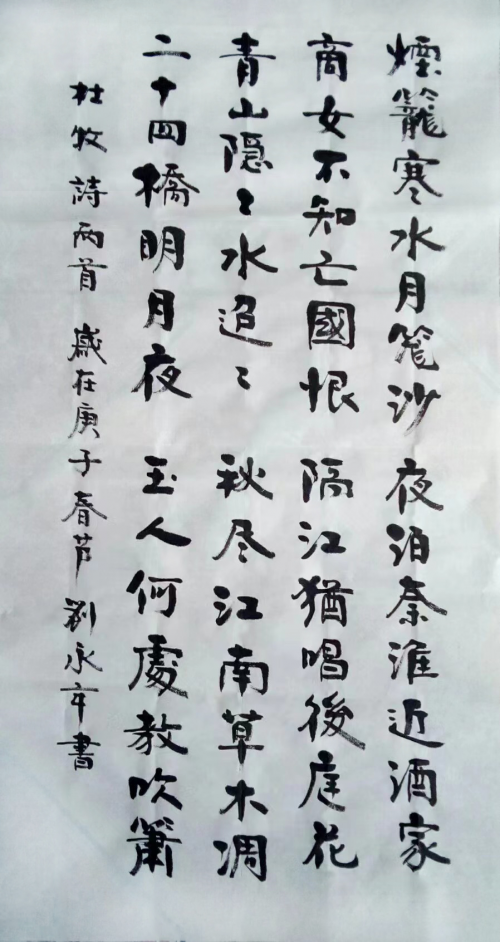 煙籠寒水月笼沙 夜泊秦淮近酒家
商女不知亡國恨 隔江猶唱後庭花
青山隐〻水迢〻 秋尽江南草木凋
二十四橋明月夜 玉人何處教吹簫
杜牧詩两首 歲在庚子春节 劉永年書